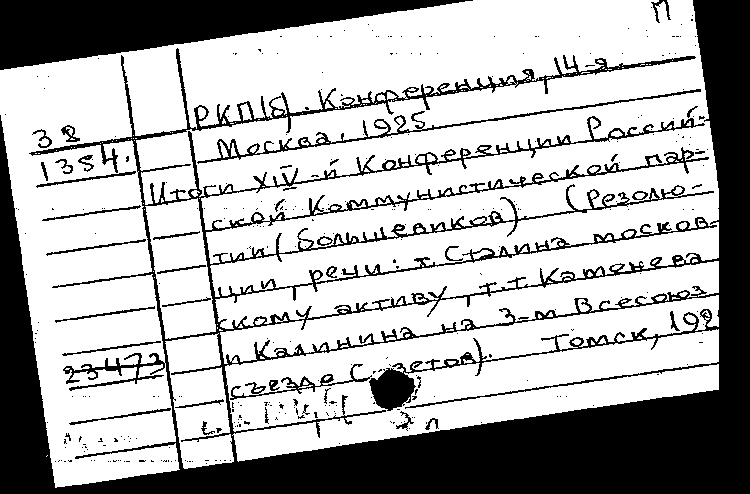 П
РКП(б). Конференция, 14-я.
Москва. 1925.
38
1354.
Итоги XIV-й Конференции Россий-
ской Коммунистической пар-
тии (большевиков). (Резолю-
ции, речи: т. Сталина москов-
скому активу, т.т. Каменева
и Калинина на 3-м Всесоюз
съезде Советов). Томск, 192
23473